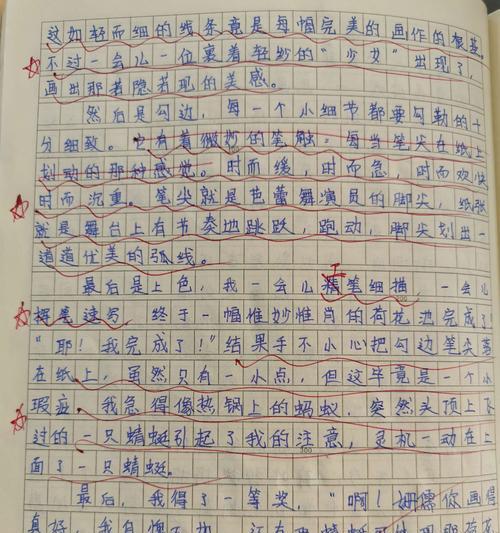 这如轻而细的线条竟是每幅完美的画作的根基。
不过一会儿一位裹着轻纱的“少女”出现了，
画出那若隐若现的美感。
然后是勾边，每一个小细节都要勾勒的十
分细致。它有着微妙的笔触：每当笔尖在纸上
划动的那种感觉。时而缓，时而急，时而欢快
时而沉重。笔尖就是芭蕾舞演员的脚尖，纸张
就是舞台上有节奏地跳跃，跑动，脚尖划出一
道道优美的弧线。
最后是上色，我一会儿工笔细描，一会儿
挥笔速写，终于一幅惟妙惟肖的荷花池完成了！
“耶！我完成了！”结果手不小心把勾边笔尖落
在纸上，虽然只有一小点，但这毕竟是一个小
瑕疵，我急得像热锅上的蚂蚁，突然头顶上飞
过的一只蜻蜓引起了我的注意，灵机一动在上
300
面了一只蜻蜓。
最后，我得了一等奖，“啊！姗儒你画得
真好，我自愧不